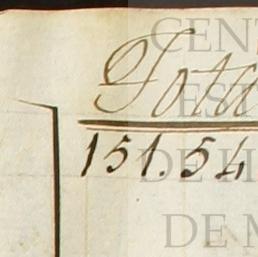 Tota
151.54
CENT
EST
DE H
DE M